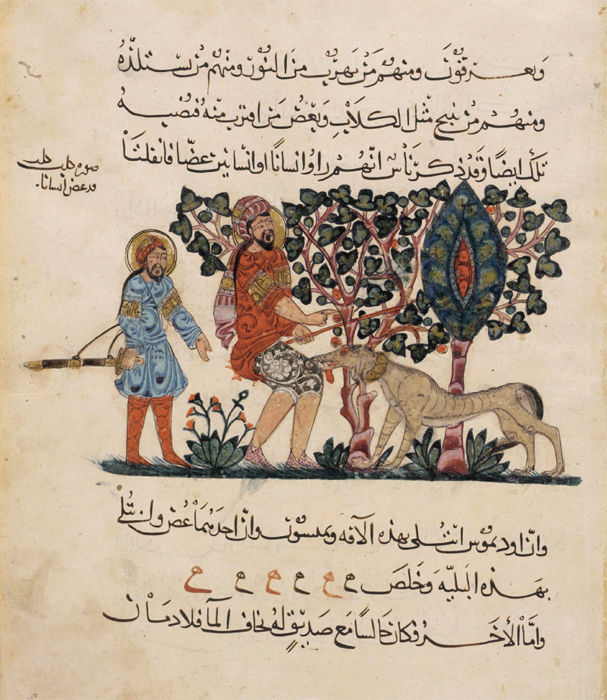 ويعرقون ومنهم من يهرب من النور ومنهم من يستلذه
ومنهم من ينبح مثل الكلاب ويعض من اقترب منه فتصيبه
تلك ايضا وقد ذكر ناس انهم راوا انسانا او انسانين عضا فانفلتا
صوره كلب كلب
قد عض انسانا
وان اوديموس ابتلى بهذه الآفه وان احدهما عض وابتلى
بهذه البليه وخلص ح ح ح ح ح ح
واما الآخر فكان جالسا مع صديق له يخاف الما